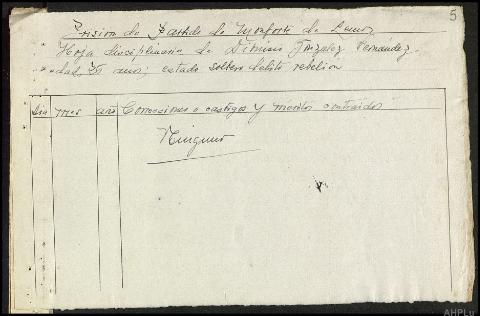 5
Prision de Partido de Monforte de Lemos
Hoja disciplinaria de Dimino González Fernández.
edad, años; estado soltero delito rebelión
Dia mes año Correcciones o castigos y meritos contraidos
Ninguno
AHPLu